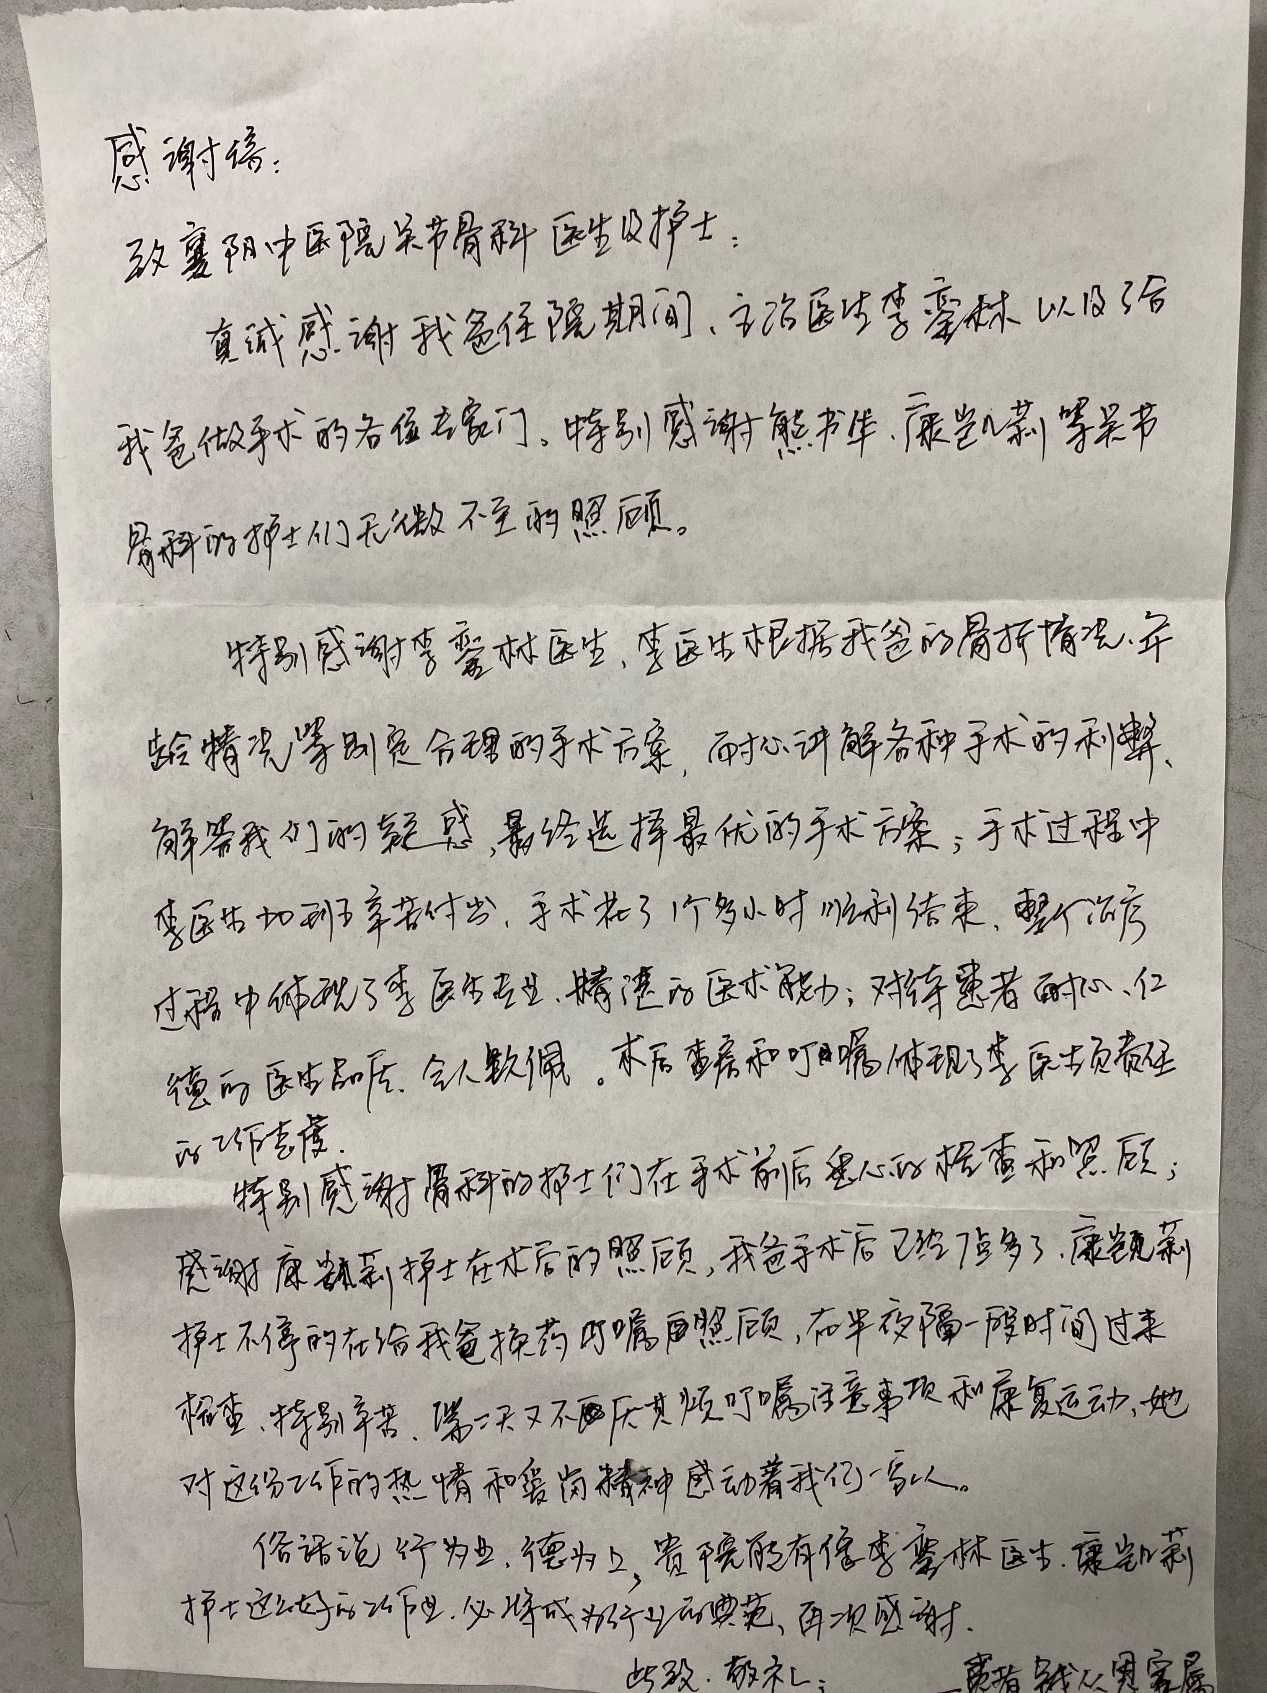 感谢信：
致襄阳中医院关节骨科医生及护士：
真诚感谢我爸住院期间、主治医生李蛮林以及给
我爸做手术的各位专家门。特别感谢熊书华、康凯莉等关节
骨科的护士们无微不至的照顾。
特别感谢李蛮林医生，李医生根据我爸的骨折情况、年
龄情况等制定合理的手术方案，耐心讲解各种手术的利弊、
解答我们的疑惑，最终选择最优的手术方案；手术过程中
李医生加班辛苦付出，手术花了1个多小时顺利结束，整个治疗
过程中体现了李医生专业、精湛的医术能力；对待患者耐心、仁
德的医生品质、令人敬佩。术后查房和叮嘱体现了李医生负责任
的工作态度.
特别感谢骨科的护士们在手术前后悉心的检查和照顾；
感谢康凯莉护士在术后的照顾，我爸手术后已经7点多了，康凯莉
护士不停的在给我爸换药叮嘱照顾，在半夜隔一段时间过来
检查、特别辛苦，第二天又不厌其烦叮嘱注意事项和康复运动、她
对这份工作的热情和爱岗精神感动着我们一家人。
俗话说行为业，德为上，贵院能有像李蛮林医生、康凯莉
护士这么好的工作者，必将成为行业的典范、再次感谢.
此致.敬礼； 患者 家属